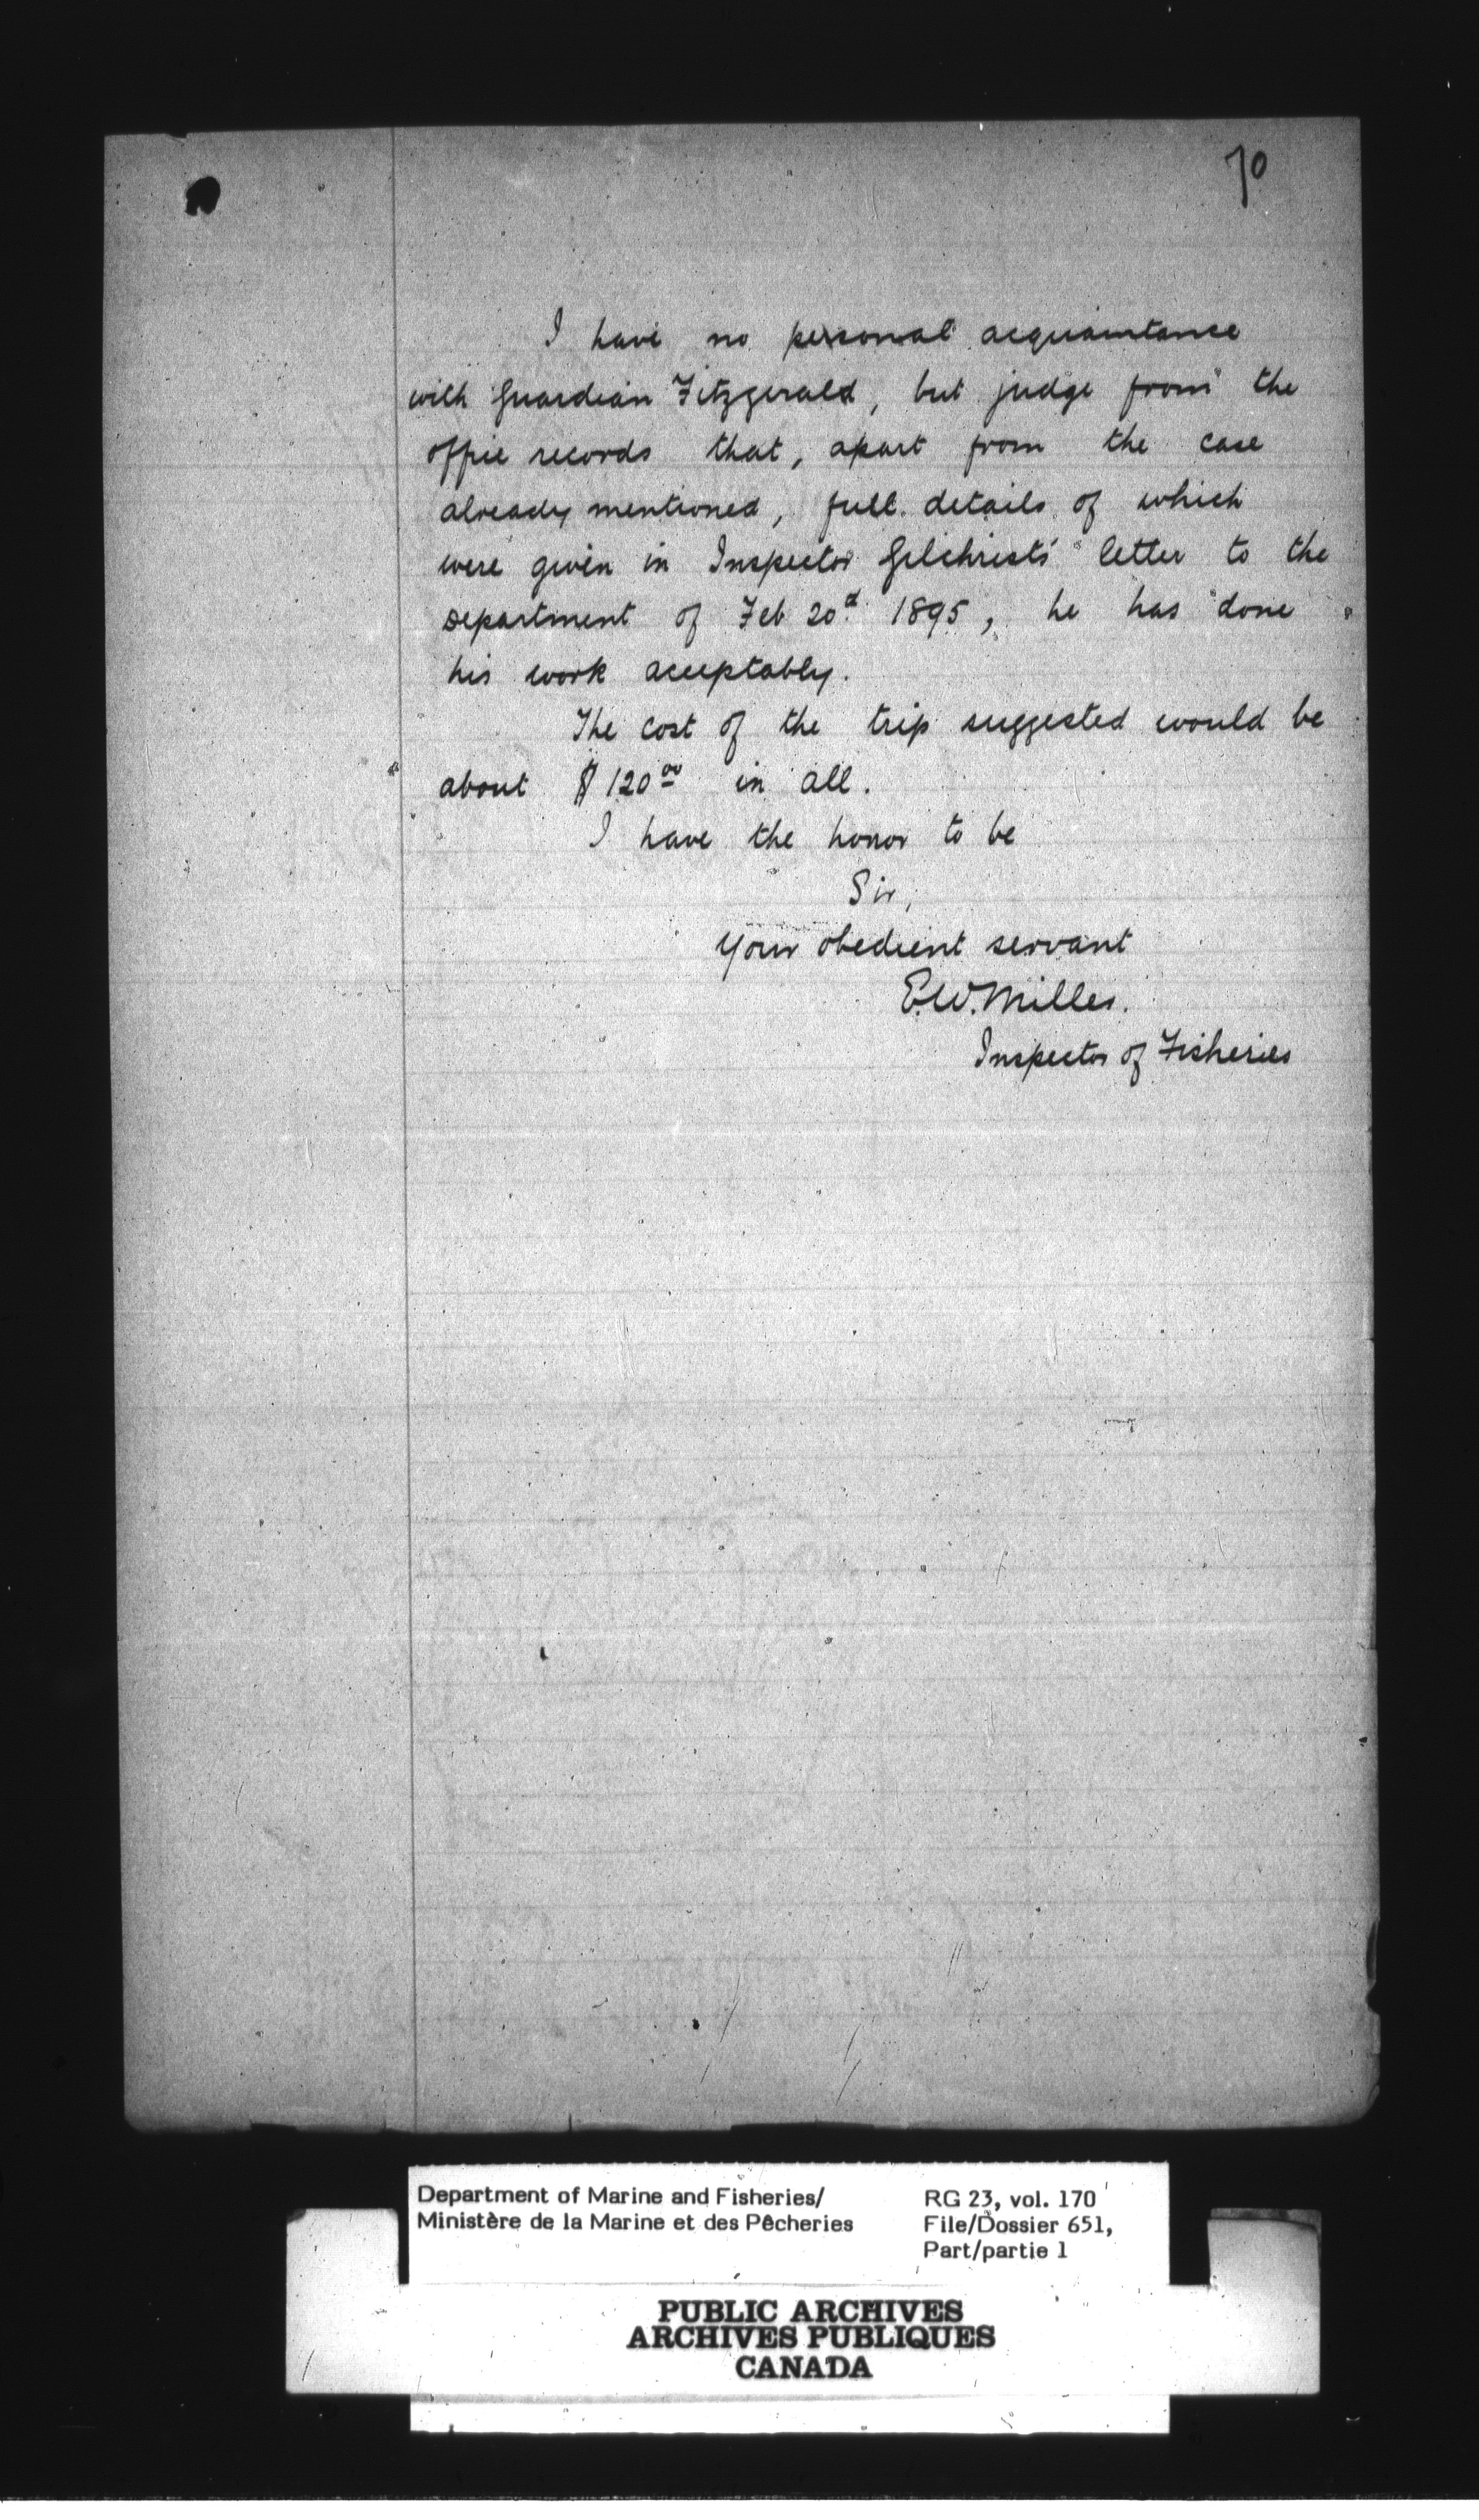 70
I have no personal acquaintance
with Guardian Fitzgerald, but judge from the
office records that, apart from the case
already mentioned, full details of which
were given in Inspector Gilchrist's letter to the
Department of Feb 20d 1895, he has done
his work acceptably.
The cost of the trip suggested would be
about $120.00 in all.
I have the honor to be
Sir,
Your obedient servant
E.W. Miller.
Inspector of Fisheries
Department of Marine and Fisheries/
Ministère de la Marine et des Pêcheries
RG 23, vol. 170
File/Dossier 651,
Part/partie 1
PUBLIC ARCHIVES
ARCHIVES PUBLIQUES
CANADA